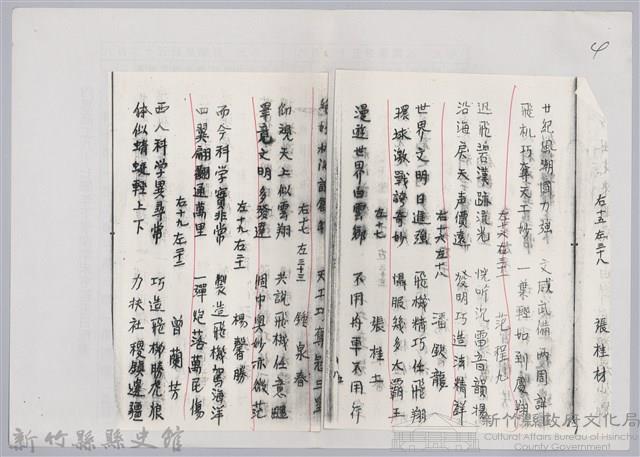 4
右十五左三十八　張桂材
廿紀風潮國力強　文咸武備兩周詳
飛机巧奪天工妙　一葉輕如到處翔
左十六右三十　范程九
迅飛碧漢跡流光　恍听沉雷音韻揚
沿海居天声價遠　發明巧造法精詳
右十六左十八　潘欽龍
世界文明日進強　飛機精巧任飛翔
環球激戰誇奇妙　懾服幾多大霸王
左十七　張桂
漫遊世界白雲鄉　不用舟車不用行
右十七左三十三　鍾泉春
仰視天上似雲翔　共說飛機任意
畢竟文明多發達　個中奧妙亦
左十九右二十　楊馨勝
而今科学實非常　製造飛機駕海洋
四翼翩翩通萬里　一彈炸落萬民傷
右十九左二十三　曾蘭芳
西人科学異尋常　巧造飛機勝虎狼
体似蜻蜓輕上下　力扶社稷鎮邊疆
新竹縣縣史館
新竹縣政府文化局
Cultural Affairs Bureau of Hsinchu County Government